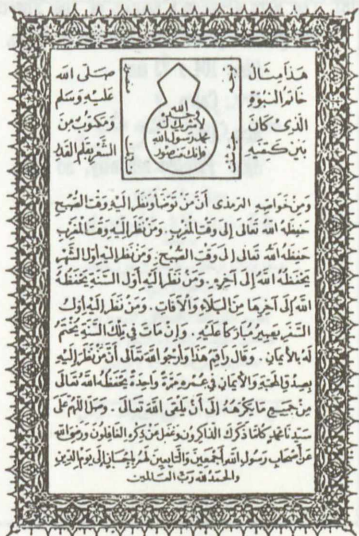 هَذَا مِثَال صَلَى الله
خَاتِمُ النُّبُوَّةِ عَلَيْهِ وَسَلم
الَّذِى كَانَ وَمَكتُوبٌ مِنَ
بَيْنَ كَتِفَيهِ الشَّعْرِ بِقَلَمِ القُدرَ
الله
لا شريك له
محمد رسول الله
فانك منصور
وَمِنْ خَوَاصِهِ الترمذى أَنَّ مَنْ تَوَضَّأَ وَنَظَرَ إِلَيْهِ وَقتَ الصُّبْحِ
حَفِظَهُ اللهُ تَعَالَى إِلَى وَقتِ المَغْرِبِ . وَمَنْ نَظَرَ إِلَيْهِ وَقتَ المَغْرِبِ
حَفِظَهُ اللهُ تَعَالَى إِلَى وَقتِ الصُّبْحِ . وَمَنْ نَظَرَ إِلَيْهِ أَوَّلَ الشَّهْرِ
يَحْفَظُهُ اللهُ إِلَى آخِرِهِ . وَمَنْ نَظَرَ إِلَيْهِ أَوَّلَ السَّنَةِ يَحْفَظُهُ
اللهُ إِلَى آخِرِهَا مِنَ البَلَاءِ وَالآفَاتِ . وَمَنْ نَظَرَ إِلَيْهِ أَوَّلَ
السَّفَرِ يَصِيرُ مُبَارَكًا عَلَيْهِ . وَإِنْ مَاتَ فِى تِلْكَ السَّنَةِ يُخْتَمُ
لَهُ بِالْأَيمَانِ . وَقَالَ رَاقِمُ هَذَا وَأَرْجُو اللهَ تَعَالَى أَنَّ مَنْ نَظَرَ إِلَيْهِ
بِصِدْقِ المَحَبَّةِ وَالأيمَانِ فِى عُمْرِهِ مَرَّةً وَاحِدَةً يَحْفَظُهُ اللهُ تَعَالَى
مِنْ جَمِيعِ مَا يَكْرَهُهُ إِلَى أَنْ يَلْقَى اللهَ تَعَالَى . وَصَلِّ اللَّهُمَّ عَلَى
سَيِّدِنَا مُحَمَّدٍ كُلَّمَا ذَكَرَكَ الذَّاكِرُونَ وَغَفَلَ عَنْ ذِكْرِهِ الغَافِلُونَ وَرَضِىَ اللهُ
عَنْ أَصْحَابِ رَسُولِ اللهِ أَجْمَعِينَ وَالتَّابِعِينَ لَهُمْ بِإِحْسَانٍ إِلَى يَوْمِ الدِّينِ
وَالحَمْدُ للهِ رَبِّ العَالَمِينَ